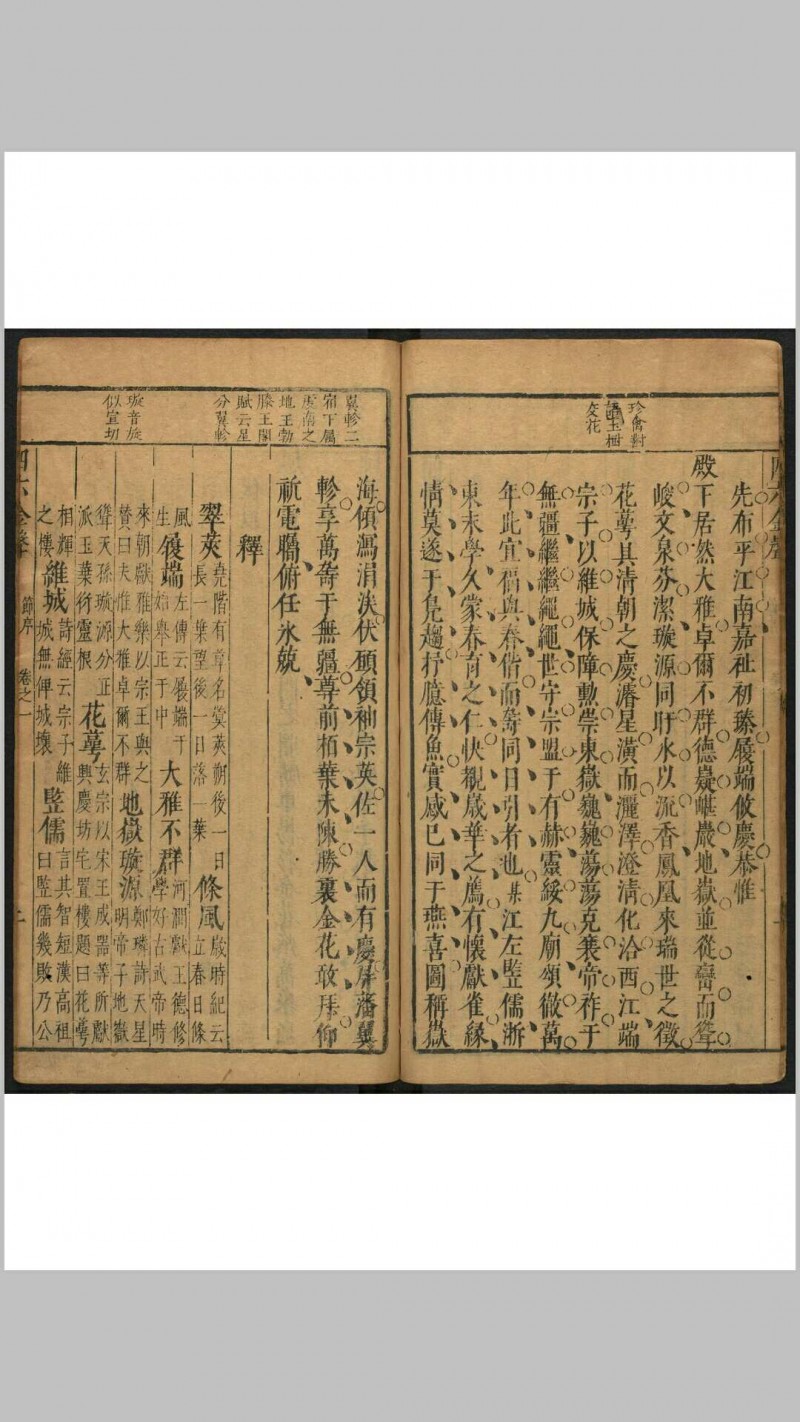 珍禽對
玉樹
交花
先布平江南嘉祉初臻履端攸慶恭惟
殿下居然大雅卓爾不群德嶷嶻嚴地嶽並從巒而聳
峻文泉芬潔璇源同肝水以流香鳳凰來瑞世之徵
花萼其清朝之慶濬星潢而灑澤澄清化洽西江端
宗子以維城保障勲崇東嶽巍巍蕩蕩克秉帝祚于
無疆繼繼繩繩世守宗盟于有赫靈綏九廟頌徹萬
年此宜福與春偕而筭同日引者也某江左豎儒浙
東末學久蒙春育之仁快覩歲華之薦有懷獻雀緣
情莫遂于鳧趨抒臆傳魚實感已同于燕喜圖稱嶽
翼軫二
宿下屬
度南之
地王勃
滕王閣
賦云星
分翼軫
璇音旋
似宣切
海傾瀉涓洟伏願領袖宗英佐一人而有慶屏藩翼
軫享萬壽于無疆尊前栢葉未陳勝裏金花敢拜仰
祈電矚俯任氷兢
釋
翠莢堯階有草名蓂莢朔後一日長一葉望後一日落一葉條風歲時紀云立春日條
風生履端左傳云履端于始舉正于中大雅不群河澗獻王德修學好古武帝時
來朝獻雅樂以宗王與之贊曰夫惟大雅卓爾不群地嶽璇源鄭璘詩天星明帝子地嶽
聳天孫璇源分正派玉葉衍靈根花萼玄宗以宋王成器等所獻興慶坊宅置樓題曰花萼
相輝之樓維城詩經云宗子維城無俾城壞豎儒言其智短漢高祖曰豎儒幾敗乃公
四六全聲
節序
卷之一
二